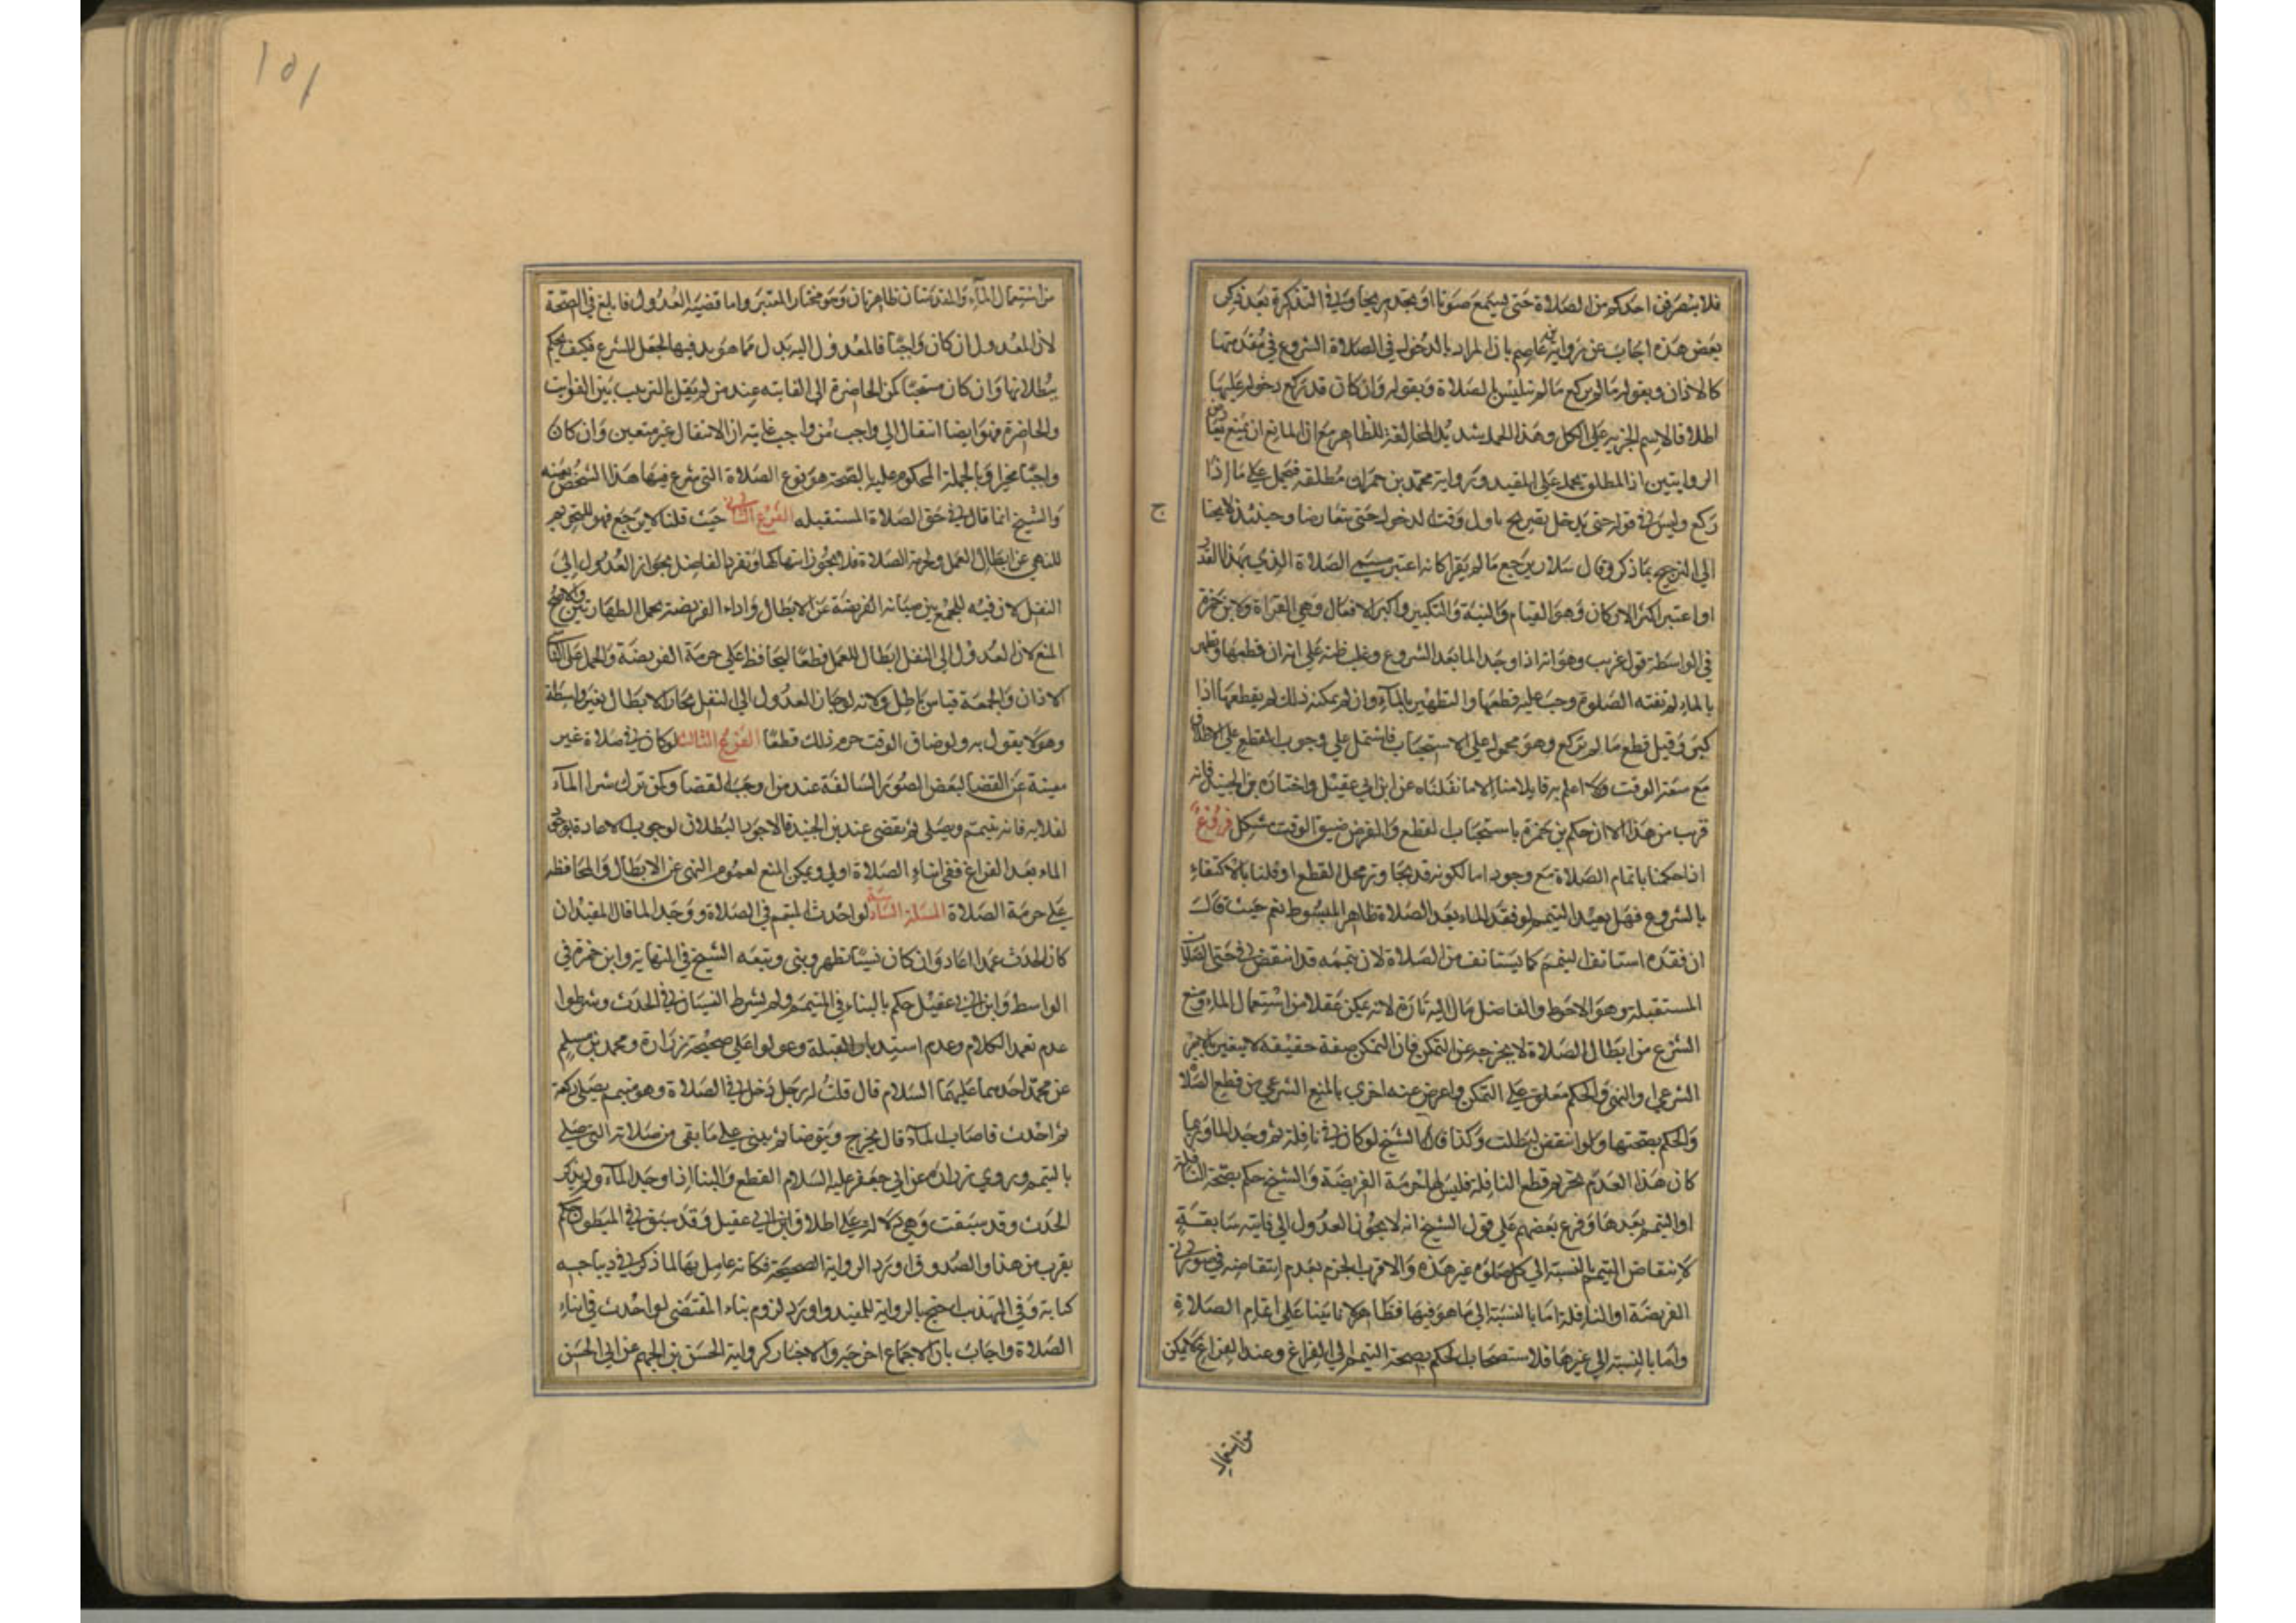 فلا ينصرفن احدكم من الصلاة حتى يسمع صوتا او يجد ريحا وفي التذكرة بعد ذكر
بعض هذه اجاب عن رواية عاصم بان المراد بالدخول في الصلاة الشروع في مقدماتها
كالاذان وبقوله ما لم يركع ما لم يتلبس بالصلاة وبقوله وان كان قد ركع دخوله عليها
اطلاقا لاسم الجزء على الكل وهذا الحمل شديد المخالفة للظاهر مع ان المانع ان يمنع تعارض
الروايتين اذ المطلق يحمل على المقيد ورواية محمد بن حمران مطلقة فيحمل على ما اذا
ركع وليس في قوله حتى يدخل تصريح باول وقت الدخول حتى يتعارضا وحينئذ لا يحتاج
الى الترجيح بما ذكر وقال سلار يرجع ما لم يقرا كانه اعتبر مسمى الصلاة الذي بهذا القدر
او اعتبر اكثر الاركان وهو القيام والنية والتكبير واكبر الافعال وهي القراة ولابن حمزة
في الواسطة قول غريب وهو انه اذا وجد الما بعد الشروع وغلب ظنه على انه ان قطعها وتطهر
بالماء لم تفته الصلوة وجب عليه قطعها والتطهير بالماء وان لم يمكنه ذلك لم يقطعها اذا
كبر وقيل قطع ما لم يركع وهو محمول على الاستحباب فاشتمل على وجوب القطع على الاطلاق
مع سعة الوقت ولا اعلم به قايلا منا الا ما نقلناه عن ابن ابي عقيل واختاره بن الجنيد فانه
قرب من هذا الا ان حكم بن حمزة باستحباب القطع والفرض ضيق الوقت مشكل فروع
اذا حكمنا باتمام الصلاة مع وجوده اما لكونه قد تجاوز محل القطع او قلنا بالاكتفاء
بالشروع فهل يعيد التيمم لو فقد الماء بعد الصلاة ظاهر المبسوط نعم حيث قال
ان فقده استانف التيمم كما يستانف من الصلاة لان تيممه قد انتقض في حق الصلاة
المستقبلة وهو الاحوط والفاضل مال اليه تارة لانه تمكن عقلا من استعمال الماء ومنع
الشرع من ابطال الصلاة لا يخرجه عن التمكن فان التمكن صفة حقيقة لا يتغير بالامر
الشرعي او النهي والحكم معلق على التمكن واعرض عنه اخرى بالمنع الشرعي من قطع الصلاة
والحكم بصحتها ولو انتقض لبطلت وكذا قال الشيخ لو كان في نافلة ثم وجد الما وربما
كان هذا العدم تحريم قطع النافلة فليس لها حرمة الفريضة والشيخ حكم بصحة النافلة
او التيمم بعدها وفرع بعضهم على قول الشيخ انه لا يجوز العدول الى فايتة سابقة
لانتقاض التيمم بالنسبة الى كل صلوة غير هذه والاقرب الجزم بعدم انتقاضه في صورتي
الفريضة او النافلة اما بالنسبة الى ما هو فيها فظاهر لانا بنينا على اتمام الصلاة
واما بالنسبة الى غيرها فلاستصحاب الحكم بصحة التيمم الى الفراغ وعند الفراغ لا يمكن
من استعمال
ج
١٥١
من استعمال الماء والمقدمتان ظاهرتان وهو مختار المعتبر واما قضية العدول فابلغ في الصحة
لان المعدول ان كان واجبا فالمعدول اليه بدل مما هو بد فيها بجعل الشرع فكيف يحكم
ببطلانها وان كان مستحبا كمن الحاضرة الى الفايتة عند من لم يقل بالترتيب بين الفوايت
والحاضرة فهو ايضا انتقال الى واجب من واجب غايته ان الانتقال غير متعين وان كان
واجبا مخيرا وبالجملة المحكوم عليه بالصحة هو نوع الصلاة التي شرع فيها هذا الشخص بعينه
والشيخ انما قال في حق الصلاة المستقبله الفرع الثاني حيث قلنا لا يرجع فهو للتحريم
للنهي عن ابطال العمل ولحرمة الصلاة فلا يجوز انتهاكها وتفرد الفاضل بجواز العدول الى
النفل لان فيه للجمع بين صيانه الفريضة عن الابطال واداء الفريضة بحمل الطهارتين والاصح
المنع لان العدول الى النفل ابطال للعمل قطعا ليحافظ على حرمة الفريضة والحمل على ناسي
الاذان والجمعة قياس باطل ولانه لو جاز العدول الى النفل لجاز الابطال بغير واسطة
وهو لا يقول به ولو ضاق الوقت حرم ذلك قطعا الفرع الثالث لو كان في صلاة غير
مغنية عن القضا لبعض الصور السالفة عند من اوجب القضا وكمن ترك شرا الماء
لغلايه فانه يتيمم ويصلى ثم يقضى عند بن الجنيد فالاجود البطلان لوجوب الاعادة بوجود
الماء بعد الفراغ ففي اثناء الصلاة اولى ويمكن المنع لعموم النهى عن الابطال والمحافظة
على حرمة الصلاة المسئلة السادسة لو احدث المتيمم في الصلاة ووجد الما قال المفيد ان
كان الحدث عمدا اعاد وان كان نسيانا تطهر وبنى وتبعه الشيخ في النهاية وابن حمزة في
الواسط وابن ابي عقيل حكم بالبناء في المتيمم ولم يشرط النسيان في الحدث وشرطوا
عدم تعمد الكلام وعدم استدبار القبلة وعولوا على صحيحة زرارة ومحمد بن مسلم
عن محمد احدهما عليهما السلام قال قلت له رجل دخل في الصلاة وهو متيمم يصلى ركعة
ثم احدث فاصاب الماء قال يخرج ويتوضا ثم يبنى على ما بقى من صلاته التي صلى
بالتيمم وروي زرارة عن ابي جعفر عليه السلام القطع والبنا اذا وجد الماء ولم يذكر
الحدث وقد سبقت وهي دالة على اطلاق ابن ابي عقيل وقد سبق في المبطون حكم
يقرب من هذا والصدوق اورد الرواية الصحيحة فكانه عامل بها لما ذكر في ديباجه
كتابه وفي المهذب احتج بالرواية للمفيد واورد لزوم بناء المقتضى لو احدث في اثناء
الصلاة واجاب بان الاجماع اخرجه والاخبار كرواية الحسن بن الجهم عن ابي الحسن